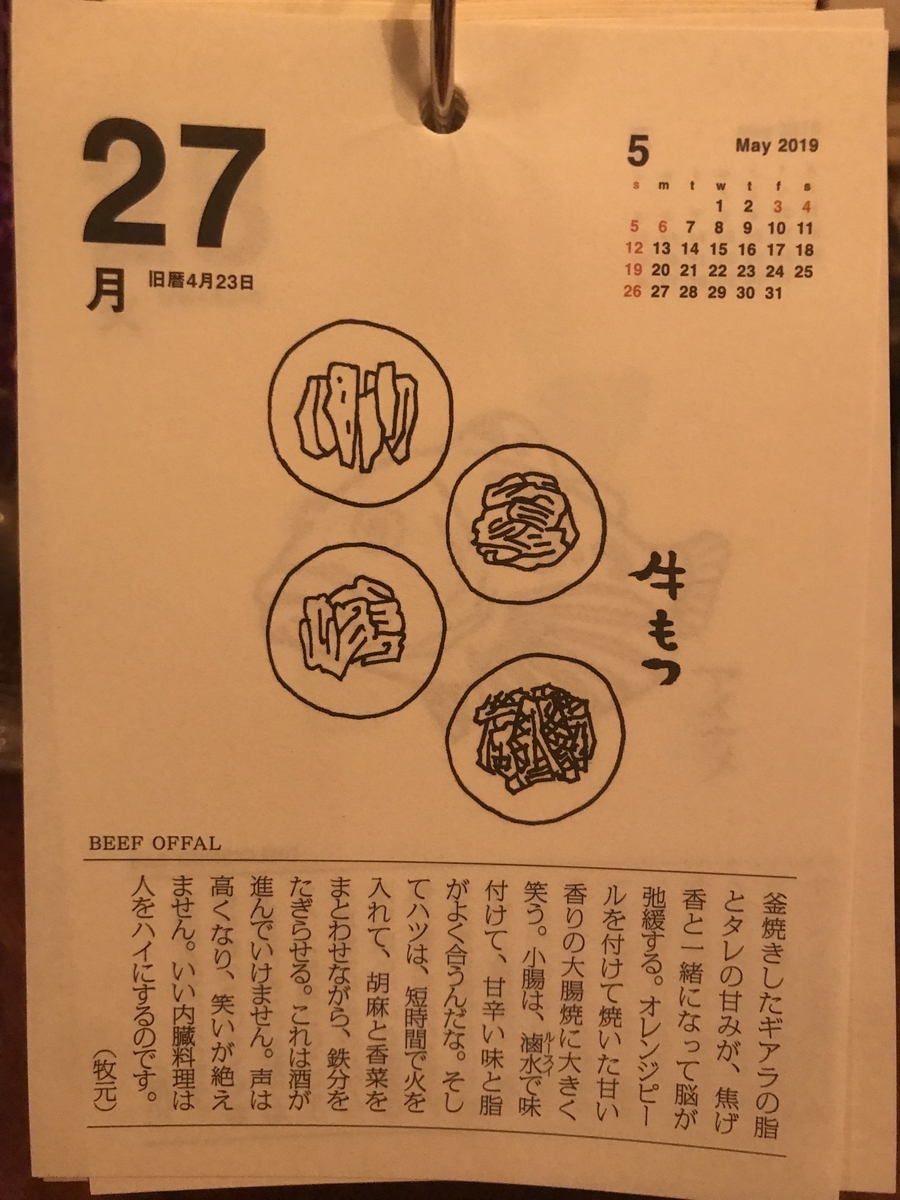 27
月
旧暦4月23日
5
May 2019
s m t w t f s
1 2 3 4
5 6 7 8 9 10 11
12 13 14 15 16 17 18
19 20 21 22 23 24 25
26 27 28 29 30 31
牛もつ
BEEF OFFAL
釜焼きしたギアラの脂
とタレの甘みが、焦げ
香と一緒になって脳が
弛緩する。オレンジピー
ルを付けて焼いた甘い
香りの大腸焼に大きく
笑う。小腸は、滷水で味
ルースイ
付けて、甘辛い味と脂
がよく合うんだな。そし
てハツは、短時間で火を
入れて、胡麻と香菜を
まとわせながら、鉄分を
たぎらせる。これは酒が
進んでいけません。声は
高くなり、笑いが絶え
ません。いい内臓料理は
人をハイにするのです。
（牧元）